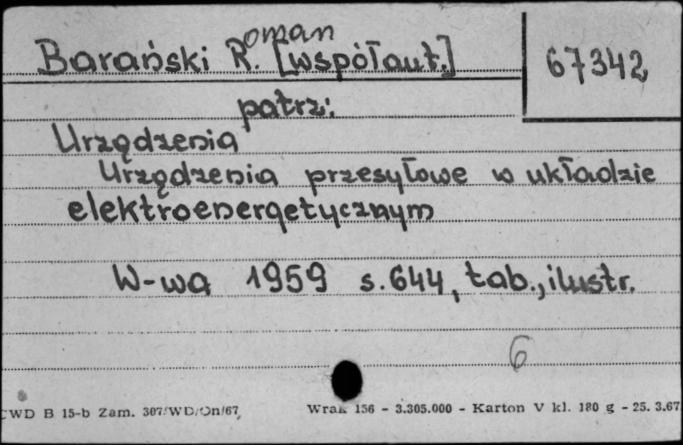 oman
Barański R. [współaut.] 67342
patrz:
Urządzenia
Urządzenia przesyłowe w układzie
elektroenergetycznym
W-wa 1959 s. 644, tab., ilustr.
6
CWD B 15-b Zam. 307/WD/On/67 Wrak 156 - 3.305.000 - Karton V kl. 180 g - 25. 3.67